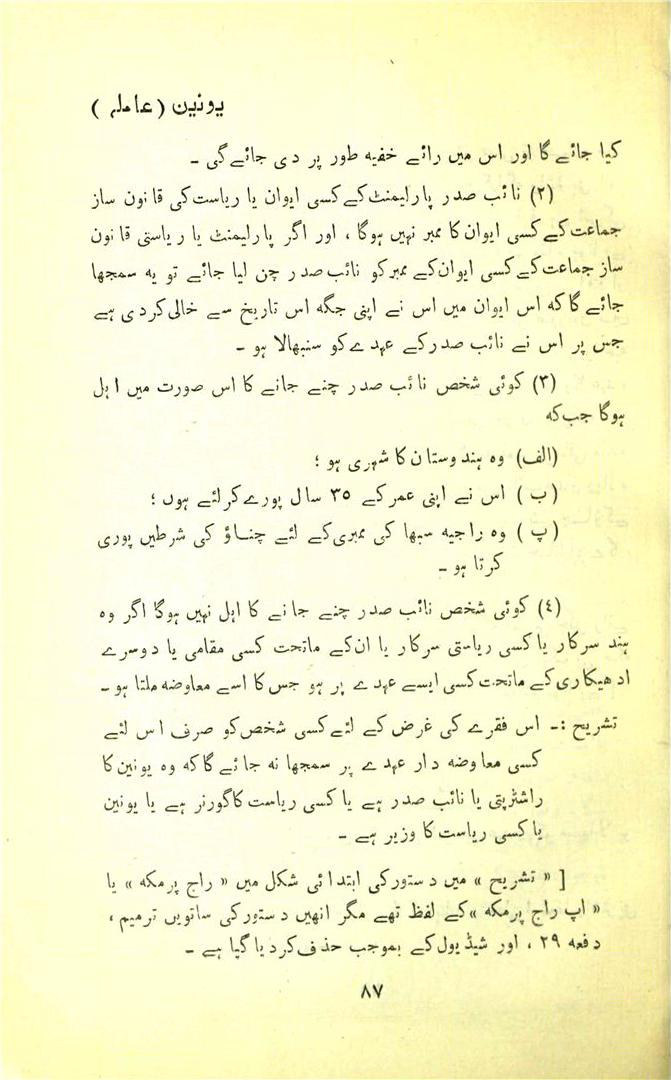 یونین (عاملہ)
کیا جائے گا اور اس میں رائے خفیہ طور پر دی جائے گی ۔
(۲) نائب صدر پارلیمنٹ کے کسی ایوان یا ریاست کی قانون ساز
جماعت کے کسی ایوان کا ممبر نہیں ہوگا ، اور اگر پارلیمنٹ یا ریاستی قانون
ساز جماعت کے کسی ایوان کے ممبر کو نائب صدر چن لیا جائے تو یہ سمجھا
جائے گا کہ اس ایوان میں اس نے اپنی جگہ اس تاریخ سے خالی کر دی ہے
جس پر اس نے نائب صدر کے عہدے کو سنبھالا ہو ۔
(۳) کوئی شخص نائب صدر چنے جانے کا اس صورت میں اہل
ہوگا جب کہ
(الف) وہ ہندوستان کا شہری ہو ؛
(ب) اس نے اپنی عمر کے ۳۵ سال پورے کر لئے ہوں ؛
(پ) وہ راجیہ سبھا کی ممبری کے لئے چناؤ کی شرطیں پوری
کرتا ہو ۔
(٤) کوئی شخص نائب صدر چنے جانے کا اہل نہیں ہوگا اگر وہ
ہند سرکار یا کسی ریاستی سرکار یا ان کے ماتحت کسی مقامی یا دوسرے
ادھیکاری کے ماتحت کسی ایسے عہدے پر ہو جس کا اسے معاوضہ ملتا ہو ۔
تشریح :۔ اس فقرے کی غرض کے لئے کسی شخص کو صرف اس لئے
کسی معاوضہ دار عہدے پر سمجھا نہ جائے گا کہ وہ یونین کا
راشٹرپتی یا نائب صدر ہے یا کسی ریاست کا گورنر ہے یا یونین
یا کسی ریاست کا وزیر ہے ۔
[ « تشریح » میں دستور کی ابتدائی شکل میں « راج پرمکھ » یا
« اپ راج پرمکھ » کے لفظ تھے مگر انھیں دستور کی ساتویں ترمیم ،
دفعہ ۲۹ ، اور شیڈیول کے بموجب حذف کر دیا گیا ہے ۔
۸۷